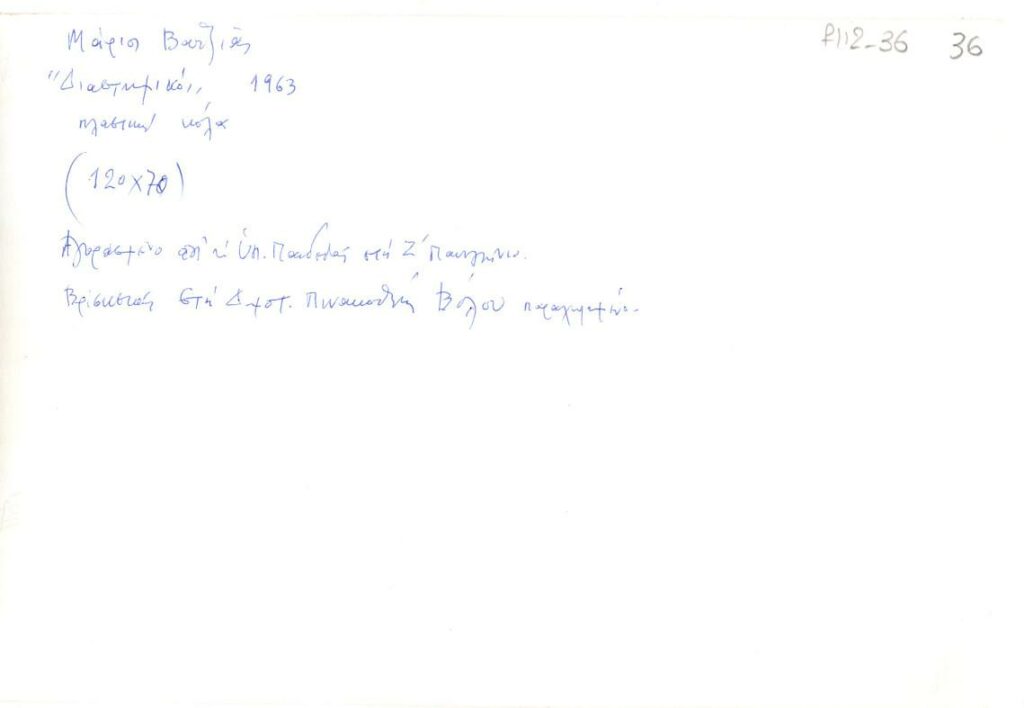 f112-36 36
Μάριος Βατζιάς
"Διαστημικό,, 1963
πλαστική κόλα
(120x70)
Αγορασμένο από τό Υπ. Παιδείας στή Ζ' Πανελλήνιο.
Βρίσκεται στή Δημοτ. Πινακοθήκη Βόλου